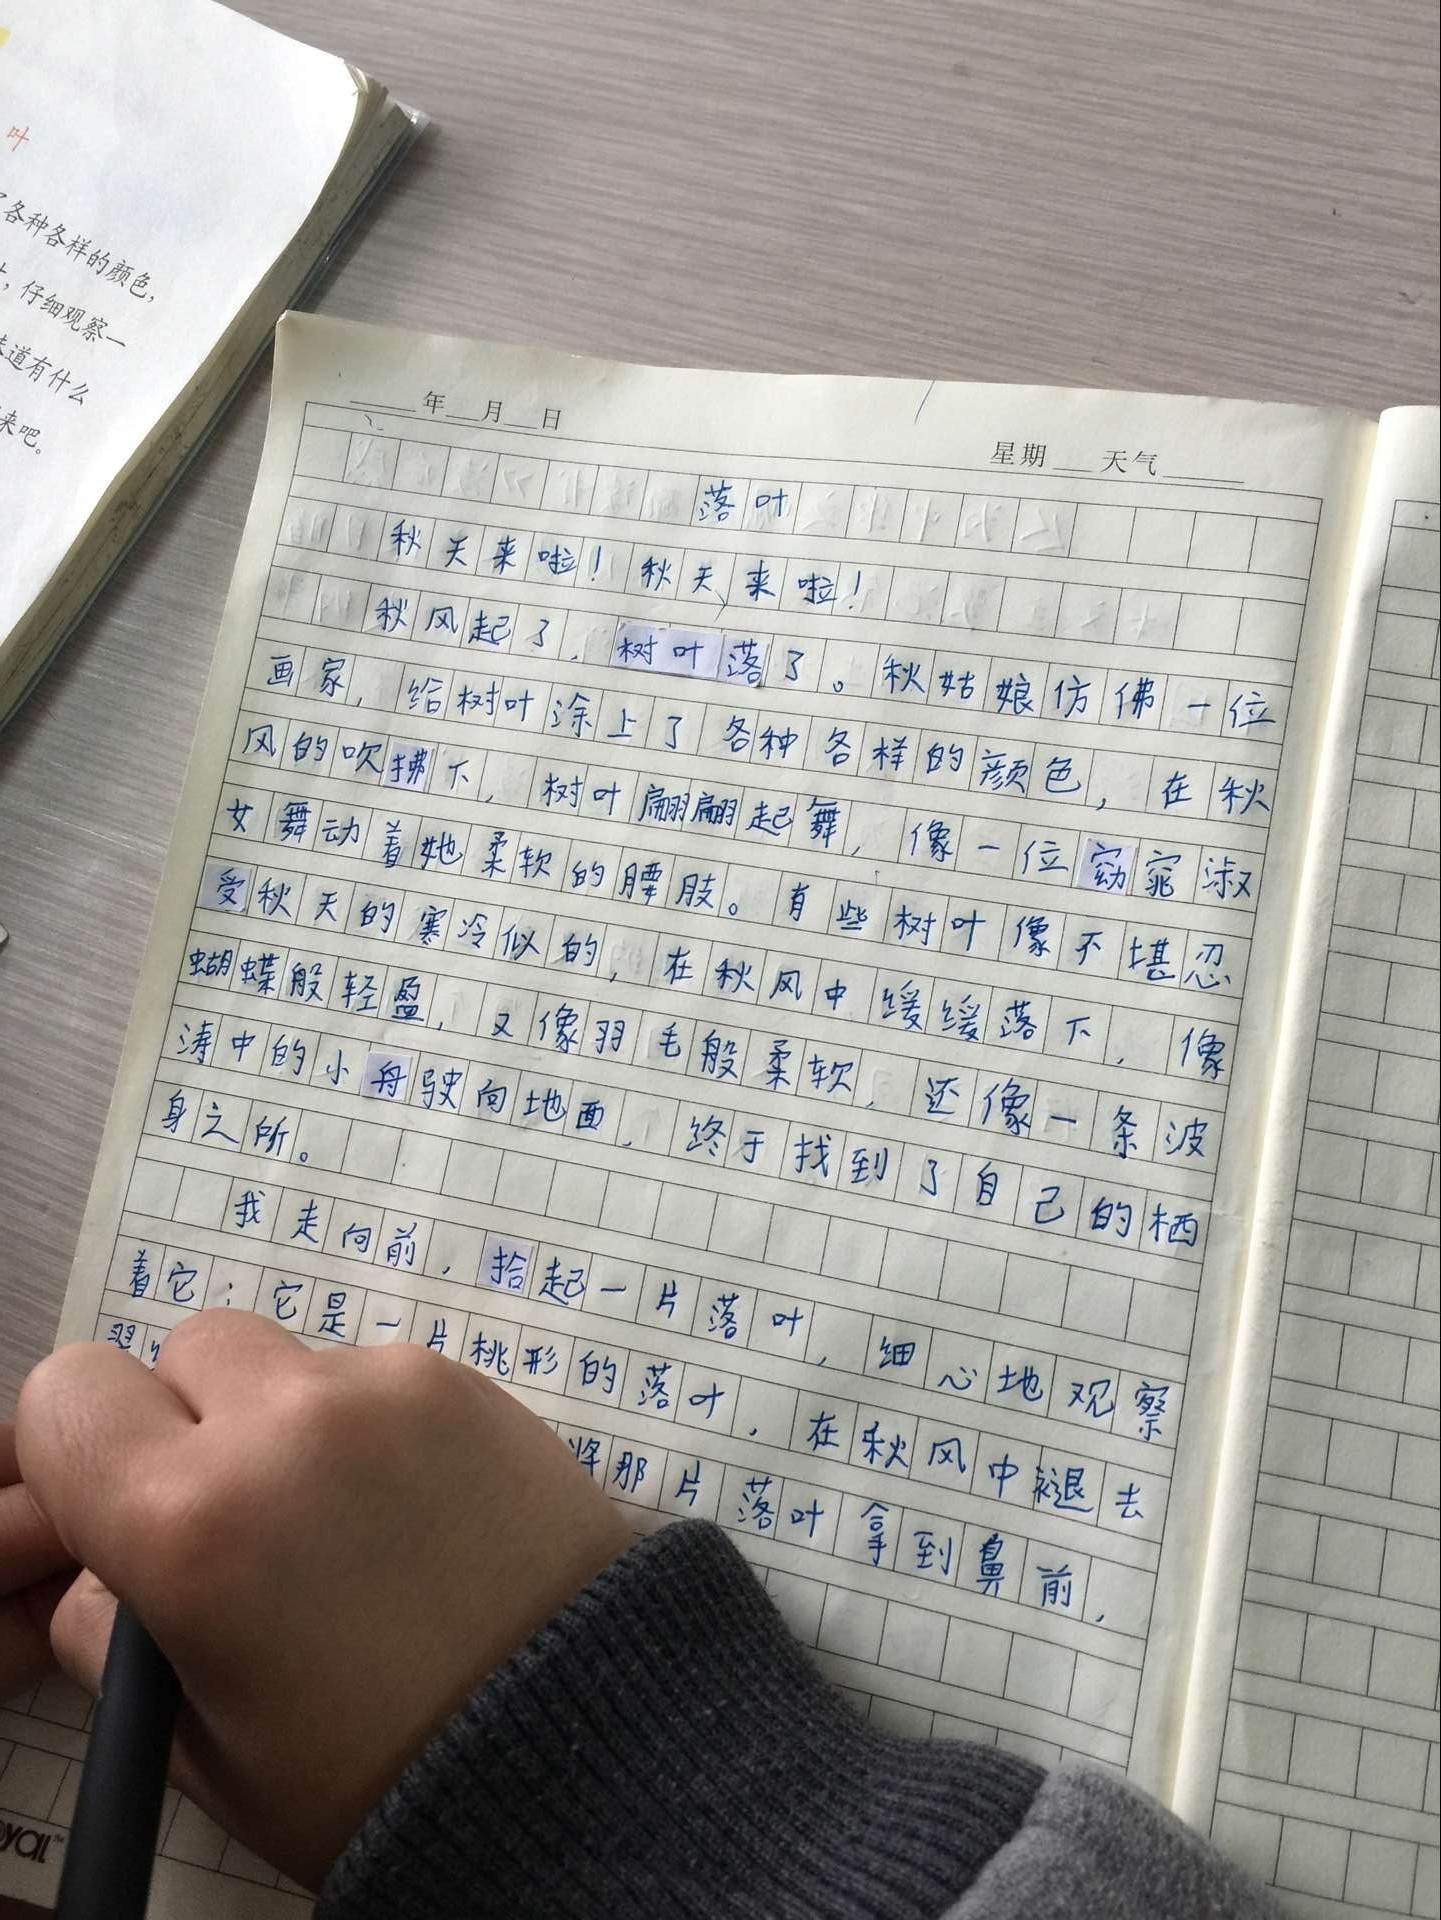 叶
各种各样的颜色，
，仔细观察一
道有什么
来吧。
年 月 日
星期 天气
落叶
秋天来啦！秋天来啦！
秋风起了，树叶落了。秋姑娘仿佛一位
画家，给树叶涂上了各种各样的颜色，在秋
风的吹拂下，树叶翩翩起舞，像一位窈窕淑
女舞动着她柔软的腰肢。有些树叶像不堪忍
受秋天的寒冷似的，在秋风中缓缓落下，像
蝴蝶般轻盈，又像羽毛般柔软，还像一条波
涛中的小舟驶向地面，终于找到了自己的栖
身之所。
我走向前，拾起一片落叶，细心地观察
着它：它是一片桃形的落叶，在秋风中褪去
将那片落叶拿到鼻前，